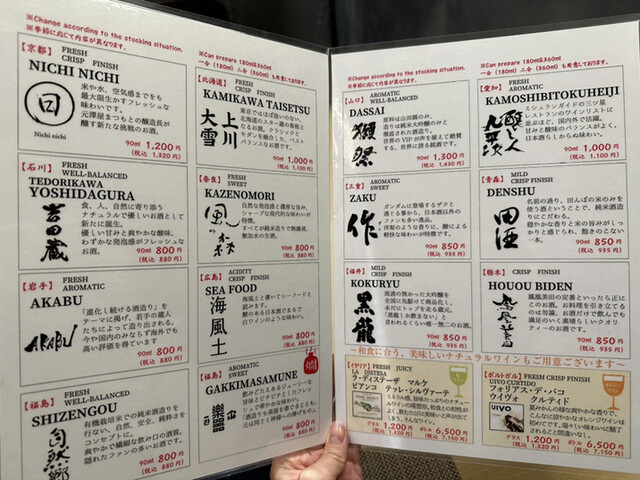 ※Change according to the stocking situation.
※季節に応じて内容が異なります。
【京都】
FRESH
CRISP FINISH
NICHI NICHI
米や水、空気感までをも
最大限生かすフレッシュな
味わいです。
元澤屋まつもとの醸造長が
醸す新たな挑戦のお酒。
日
Nichi nichi
90ml 1,200円
(税込 1,320円)
【石川】
FRESH
WELL-BALANCED
TEDORIKAWA
YOSHIDAGURA
食、人、自然に寄り添う
ナチュラルで優しいお酒として
新たに誕生。
優しい甘みと爽やかな酸味、
わずかな発泡感がフレッシュな
お酒。
吉田蔵
90ml 800円
(税込 880円)
【岩手】
FRESH
AROMATIC
AKABU
「進化し続ける酒造り」を
テーマに掲げ、若手の蔵人
たちによって造り出される。
今や国内のみならず海外でも
高い評価を得ています
AKABU
90ml 800円
(税込 880円)
【福島】
FRESH
WELL-BALANCED
SHIZENGOU
有機栽培米での純米酒造りを
行ない、自然、安全、純粋さを
コンセプトに。
爽やかで繊細な飲み口の酒質。
隠れたファンの多いお酒です。
自然郷
90ml 800円
(税込 880円)
※Can prepare 180ml&360ml
一合(180ml) 二合(360ml)も用意しております。
【北海道】
FRESH
CRISP FINISH
KAMIKAWA TAISETSU
東京ではほぼ扱いのない、
北海道のスター蔵の看板と
なるお酒。クラシックと
モダンを融合した、ベスト
バランスなお酒です。
上川
大雪
90ml 1,000円
(税込 1,100円)
【奈良】
FRESH
SWEET
KAZENOMORI
自然な発泡感と濃厚な旨み、
シャープな現代的な味わいが
特徴。
すべてが純米造りで無濾過、
無加水の生酒。
風の森
90ml 800円
(税込 880円)
【広島】
ACIDITY
CRISP FINISH
SEA FOOD
海風土と書いてシーフードと
読みます。
酸のある日本酒でまるで
白ワインのような味わい。
海風土
90ml 800円
(税込 880円)
【福島】
AROMATIC
SWEET
燗
GAKKIMASAMUNE
90ml 800円
(税込 880円)
※Change according to the stocking situation.
※季節に応じて内容が異なります。
【山口】
AROMATIC
WELL-BALANCED
DASSAI
原料は山田錦のみ、
造りは純米大吟醸のみと
徹底された酒造り。
世界のVIPが声を揃えて絶賛
する、世界に誇る銘酒です。
獺祭
90ml 1,300円
(税込 1,430円)
【三重】
AROMATIC
SWEET
ZAKU
ガンダムに登場するザクと
通ずる事から、日本酒以外の
ファンも多いんです。
洋梨のような香りに、酸による
軽快な味わいが特徴です。
作
90ml 850円
(税込 935円)
【福井】
MILD
CRISP FINISH
KOKURYU
流通の無かった大吟醸を
全国に先駆けて商品化し、
未だにトップを走る蔵元。
『黒龍しか飲まない』と
言われるくらい唯一無二のお酒。
黒龍
90ml 850円
(税込 935円)
※Can prepare 180ml&360ml
一合(180ml) 二合(360ml)も用意しております。
【愛知】
FRESH
AROMATIC
KAMOSHIBITOKUHEIJI
ミシュランガイドの三ツ星
レストランのワインリストに
並ぶほど、国内外で活躍。
甘みと酸味のバランスがよく、
日本酒らしからぬ味わい。
醸し人
九平次
90ml 1,000円
(税込 1,100円)
【青森】
MILD
CRISP FINISH
DENSHU
名前の通り、田んぼの米のみを
使う酒ということで、純米酒造
りにこだわる。
穏やかな香りと米の旨みがしっ
かりと感じられ、飽きのこない
一本。
田酒
90ml 850円
(税込 935円)
【栃木】
CRISP FINISH
HOUOU BIDEN
鳳凰美田の定番といったら正に
このお酒。お料理を引き立てる
のは勿論、お酒だけで飲んでも
満足のいく素晴らしいクオリ
ティーのお酒です。
鳳凰美田
90ml 850円
(税込 935円)
～和食に合う、美味しいナチュラルワインもご用意ございます～
【イタリア】
FRESH JUICY
LA DISTESA
ラ・ディステーザ マルケ
ビアンコ テラレ・シルヴァーテ
グラス 1,200円
(税込 1,320円)
ボトル 6,500円
(税込 7,150円)
【ポルトガル】
FRESH CRISP FINISH
UIVO CURTIDO
フォリアス・デ・バコ
ウイヴォ クルティド
UIVO
グラス 1,200円
(税込 1,320円)
ボトル 6,500円
(税込 7,150円)